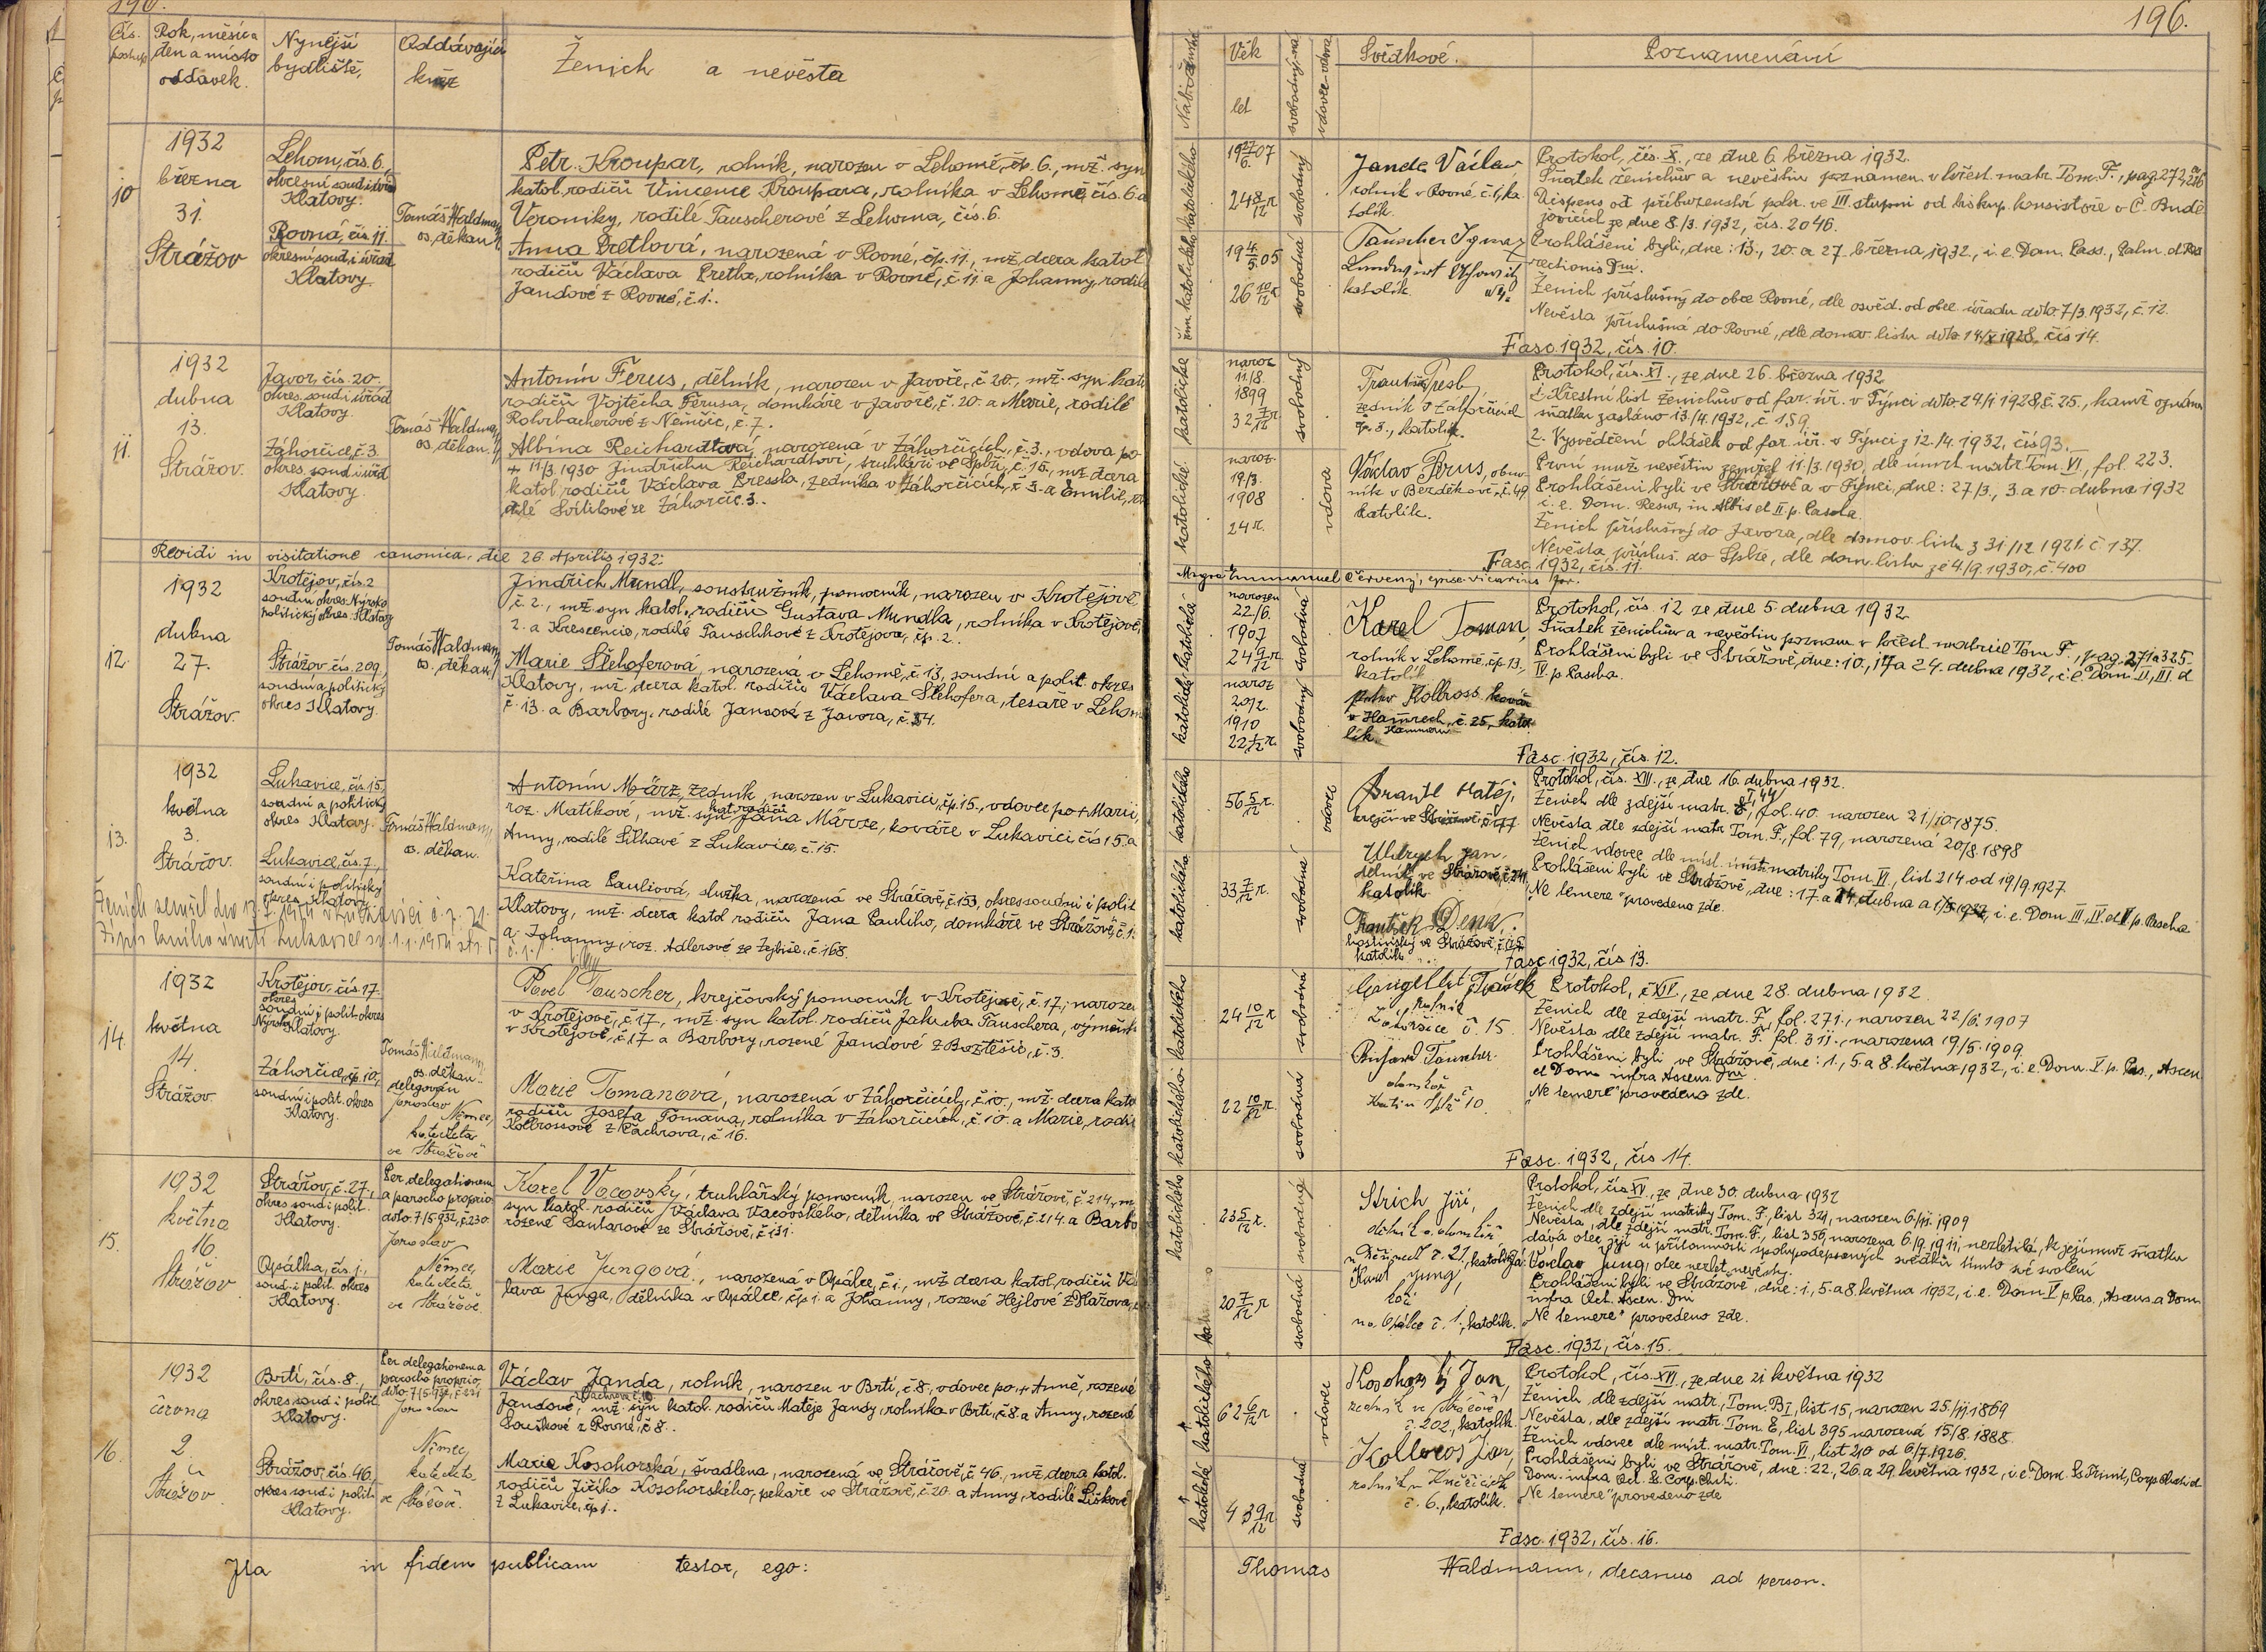 196.
Čís. postup.
Rok, měsíc a
den a místo
oddavek.
Nynější
bydliště,
Oddávající
kněz
Ženich a nevěsta
10
1932
března
31.
Strážov
Lehom, čís. 6.
okresní soud i úřad
Klatovy.
Rovná, čís. 11.
okresní soud i úřad
Klatovy.
Tomáš Waldmann
os. děkan
Petr Kroupar, rolník, narozen v Lehomě, čp. 6., mž. syn
katol. rodičů Vincence Kroupara, rolníka v Lehomě, čís. 6. a
Veroniky, rodilé Tauscherové z Lehoma, čís. 6.
Anna Pretlová, narozená v Rovné, čp. 11., mž. dcera katol.
rodičů Václava Pretla, rolníka v Rovné, č. 11. a Johanny, rodilé
Jandové z Rovné, č. 1..
11.
1932
dubna
13.
Strážov.
Javor, čís. 20.
okres. soud i úřad
Klatovy.
Záhorčice, č. 3.
okres. soud i úřad
Klatovy.
Tomáš Waldmann
os. děkan.
Antonín Ferus, dělník, narozen v Javoře, č. 20., mž. syn kato
rodičů Vojtěcha Ferusa, domkáře v Javoře, č. 20. a Marie, rodilé
Rohrbacherové z Němčic, č. 7.
Albína Reichardtová, narozená v Záhorčicích, č. 3., vdova po
+ 11/3. 1930 Jindřichu Reichardtovi, truhláři ve Spůli, č. 15., mž. dcera
katol. rodičů Václava Pressla, zedníka v Záhorčicích, č. 3. a Emilie, ro
dilé ze Záhorčic 3..
Revidi in visitatione canonica, die 26 Aprilis 1932:
12.
1932
dubna
27.
Strážov.
Krotějov, čís. 2
soudní okres. Nýrsko
politický okres. Klatovy
Strážov, čís. 209,
soudní a politický
okres Klatovy.
Tomáš Waldmann
os. děkan.
Jindřich Mundl, soustružník, pomocník, narozen v Krotějově,
č. 2., mž. syn katol. rodičů Gustava Mundla, rolníka v Krotějově,
2. a Krescencie, rodilé Tauschkové z Krotějova, čp. 2.
Marie Stehoferová, narozená v Lehomě, č. 13, soudní a polit. okres
Klatovy, mž. dcera katol. rodičů Václava Stehofera, tesaře v Lehomě
č. 13. a Barbory, rodilé Jansové z Javora, č. 34.
13.
1932
května
3.
Strážov.
Lukavice, čís. 15,
soudní a politický
okres Klatovy.
Lukavice, čís. 7.,
soudní i politický
okres Klatovy.
Tomáš Waldmann,
os. děkan.
Antonín März, zedník, narozen v Lukavici, čp. 15., vdovec po + Marii,
roz. Matíkové, mž. syn kat. rodičů Jana Märze, kováře v Lukavici čís 15. a
Anny, rodilé Sílhavé z Lukavice, č. 15.
Kateřina Pauliová, služka, narozená ve Strážově, č. 153, okres soudní i polit.
Klatovy, mž. dcera katol. rodičů Jana Pauliho, domkáře ve Strážově, č. 1
a Johanny, roz. Adlerové ze Zejbiše, č. 168.
14.
1932
května
14.
Strážov.
Krotějov, čís. 17.
okres
soudní i polit. okres
Nýrsko Klatovy.
Záhorčice, čp. 10,
soudní i polit. okres
Klatovy.
Tomáš Waldmann
os. děkan..
delegován
Jaroslav
Němec,
katecheta
ve Strážově
Pavel Tauscher, krejčovský pomocník v Krotějově, č. 17., narozen
v Krotějově, č. 17., mž. syn katol. rodičů Jakuba Tauschera, výměnk
v Krotějově, č. 17 a Barbory, rozené Jandové z Božtěšic, č. 3.
Marie Tomanová, narozená v Záhorčicích, č. 10., mž. dcera kato
rodičů Josefa Tomana, rolníka v Záhorčicích, č. 10. a Marie, rodi
Kolbrossové z Čachrova, č. 16.
15.
1932
května
16.
Strážov
Strážov, č. 27,
okres soud i polit.
Klatovy.
Opálka, čís. 1.,
soud. i polit. okres
Klatovy.
Per delegationem
a parocho proprio
ddto. 7/5. 932, č. 230.
Jaroslav
Němec,
katecheta
ve Strážově.
Karel Vacovský, truhlářský pomocník, narozen ve Strážově, č. 214, m
syn katol. rodičů Václava Vacovského, dělníka ve Strážově, č. 214. a Barbo
rozené Santarové ze Strážově, č. 131.
Marie Jungová, narozená v Opálce, č. 1., mž dcera katol. rodičů Vá
lava Junga, dělníka v Opálce, čp. 1. a Johanny, rozené Hejlové z Hařova,
16.
1932
června
2.
Strážov.
Brtí, čís. 8.,
okres soud i polit.
Klatovy.
Strážov, čís. 46.
okres soud i polit.
Klatovy.
Per delegationem a
parocho proprio,
ddto. 7/5. 932, č. 231
Jaroslav
Němec,
katecheta
ve Strážově.
Václav Janda, rolník, narozen v Brtí, č. 8, vdovec po + Anně, rozené
Jandové, mž. syn katol. rodičů Matěje Jandy, rolníka v Brtí, č. 8. a Anny, rozené
Souškové z Rovné, č. 8..
Marie Kosohorská, švadlena, narozená ve Strážově, č. 46., mž. dcera katol.
rodičů Jiřího Kosohorského, pekaře ve Strážově, č. 20. a Anny, rodilé Liškové
z Lukavice, čp. 1..
Ita in fidem publicam testor, ego:
196.
Náboženství
Věk
let
svobodný-ná
vdovec-vdova
Svědkové.
Poznamenání
24 8/12 r.
svobodný
26 10/12 r.
svobodná
Janda Václav
rolník v Rovné, č. 1, ka
tolík.
Tauscher Ignaz
katolík.
Protokol, čís. X., ze dne 6. března 1932.
Sňatek ženichův a nevěstin poznamen. v křest. matr. Tom. F., pag. 272, a 226
Dispens od příbuzenství pokr. ve III. stupni od biskup. konsistoře v Č. Budě
jovicích ze dne 8./3. 1932, čís. 2046.
Prohlášeni byli, dne: 13., 20. a 27. března 1932., i. e. Dom. Pass., Palm. et Resur
rectionis Dni.
Ženich příslušný do obce Rovné, dle osvěd. od obec. úřadu ddto. 7/3. 1932, č. 12.
Nevěsta příslušná do Rovné, dle domov. listu ddto 14/X 1928, čís 14.
Fasc. 1932, čís. 10.
katolické
naroz
11./8.
1899
32 7/12 r.
svobodný
katolické.
naroz.
19./3.
1908
24 r.
vdova
zedník v Záhorčicích
čp. 3., katolík.
Václav Ferus, obuv-
ník v Běrděkově, č. 49
katolík.
Protokol, čís. XI., ze dne 26. března 1932
1. Křestní list ženichův od far. úř. v Týnci ddto. 24/1 1928, č. 25., kamž oznám.
sňatku zasláno 13./4. 1932, č. 159.
2. Vysvědčení ohlášek od far. úř. v Týnci z 12. /4. 1932, čís 93.
První muž nevěstin zemřel 11./3. 1930, dle úmrt. matr. Tom. VI, fol. 223.
Prohlášeni byli ve Strážově a v Týnci, dne: 27/3., 3. a 10. dubna 1932
i. e. Dom. Resur., in Albis et II. p. Pascha.
Ženich příslušný do Javora, dle domov. listu z 31/12 1921. č. 137.
Nevěsta přísluš. do Spůle, dle dom. listu ze 4./9. 1930, č. 400
Fasc. 1932, čís. 11.
Emmanuel Červený, episc. vicarius for.
katolická
narozen
22./6.
1907
24 9/12 r.
svobodná
katolická
naroz
20/2.
1910
22 1/12 r.
svobodný
Karel Toman,
rolník v Lehomě, čp. 13.,
katolík
Kolbross kovář
v Hamrech, č. 25, kato-
lík. Hammern
Protokol, čís. 12 ze dne 5. dubna 1932
Sňatek ženichův a nevěstin poznam v křest. matrice Tom. F., pag. 271 a 325.
Prohlášeni byli ve Strážově, dne: 10., 17 a 24. dubna 1932, i. e. Dom. II., III. et
IV. p Pascha.
Fasc. 1932, čís. 12.
katolického
56 5/12 r.
vdovec
katolického
33 7/12 r.
svobodná
Brantl Matěj,
krejčí ve Strážově, č. 77
Uldrych Jan,
dělník ve Strážově, č. 241,
katolík
František Denk,
hostinský ve Strážově, č. 125
katolík
Protokol, čís. XIII., ze dne 16. dubna 1932.
Ženich dle zdejší matr. fol. 40. narozen 21/10. 1875.
Nevěsta, dle zdejší matr. Tom. F., fol. 79, narozená 20/8. 1898
Ženich vdovec dle míst. úmrt. matriky Tom. VI., list 214 od 19/9 1927.
Prohlášeni byli ve Strážově, dne: 17. a 24. dubna a 1/5. 1932, i. e. Dom. III., IV. et V. p. Pascha
„Ne temere" provedeno zde.
Fasc 1932, čís 13.
katolického
24 10/12 r
svobodná
katolického
22 10/12 r.
svobodná
rolník
Záhorčice č. 15.
Richard Tauscher.
domkář
č 10.
Protokol, č. XIV., ze dne 28. dubna 1932
Ženich dle zdejší matr. F. fol. 271., narozen 22/6. 1907
Nevěsta dle zdejší matr. F. fol. 311., narozena 19/5. 1909.
Prohlášeni byli ve Strážově, dne: 1., 5. a 8. května 1932, i. e. Dom. V. p. Pas., Ascen
et Dom infra Ascens. Dni.
„Ne temere" provedeno zde.
Fasc. 1932, čís 14.
katolického
23 5/12 r.
svobodný
20 7/12 r
svobodná
Strich Jiří,
dělník a domkář
č. 21, katolík
Karel Jung,
na Opálce č. 1., katolík.
Protokol, čís. XV, ze dne 30. dubna 1932
Ženich dle zdejší matriky Tom. F., list 321, narozen 6/11. 1909
Nevěsta, dle zdejší matr. Tom. F., list 356, narozena 6./9. 1911, nezletilá, k jejímuž sňatku
dává otec její u přítomnosti spolupodepsaných svědků tímto své svolení
Václav Jung, otec nezlet. nevěsty.
Prohlášeni byli ve Strážově, dne: 1., 5. a 8. května 1932, i. e. Dom V. p. Pas., Ascens. a Dom.
infra Oct. Ascen. Dni
„Ne temere" provedeno zde.
Fasc. 1932, čís. 15.
katolického
62 6/12 r
vdovec
katolické
43 9/12 r.
svobodná
Kosohorský Jan,
ve Strážově
č. 202., katolík.
Kollros Jan,
rolník v Kněčicích
č. 6., katolík.
Protokol, čís. XVI, ze dne 21 května 1932
Ženich dle zdejší matr., Tom. B I, list 15, narozen 25./11. 1869
Nevěsta, dle zdejší matr. Tom. E, list 395 narozená 15./8. 1888.
Ženich vdovec dle míst. matr. Tom. VI, list 210 od 6/7. 1926.
Prohlášeni byli ve Strážově, dne: 22., 26. a 29. května 1932, i. e. Dom. Ss Trinit., Corp. Christi et
Dom. infra Oct. Ss Corp. Christi.
„Ne temere" provedeno zde
Fasc. 1932, čís. 16.
Thomas Waldmann, decanus ad person.